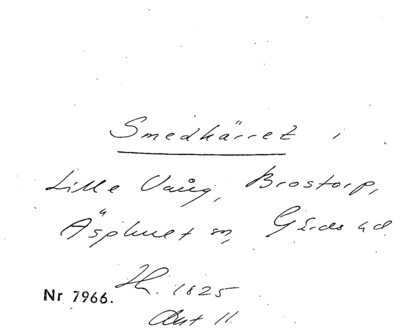 Smedkärret i
Lille Vång, Brostorp,
Äsphult sn, Gärds hd
Nr 7966. 1825
Akt 11